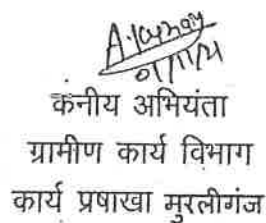 01/11/21
कनीय अभियंता
ग्रामीण कार्य विभाग
कार्य प्रषाखा मुरलीगंज